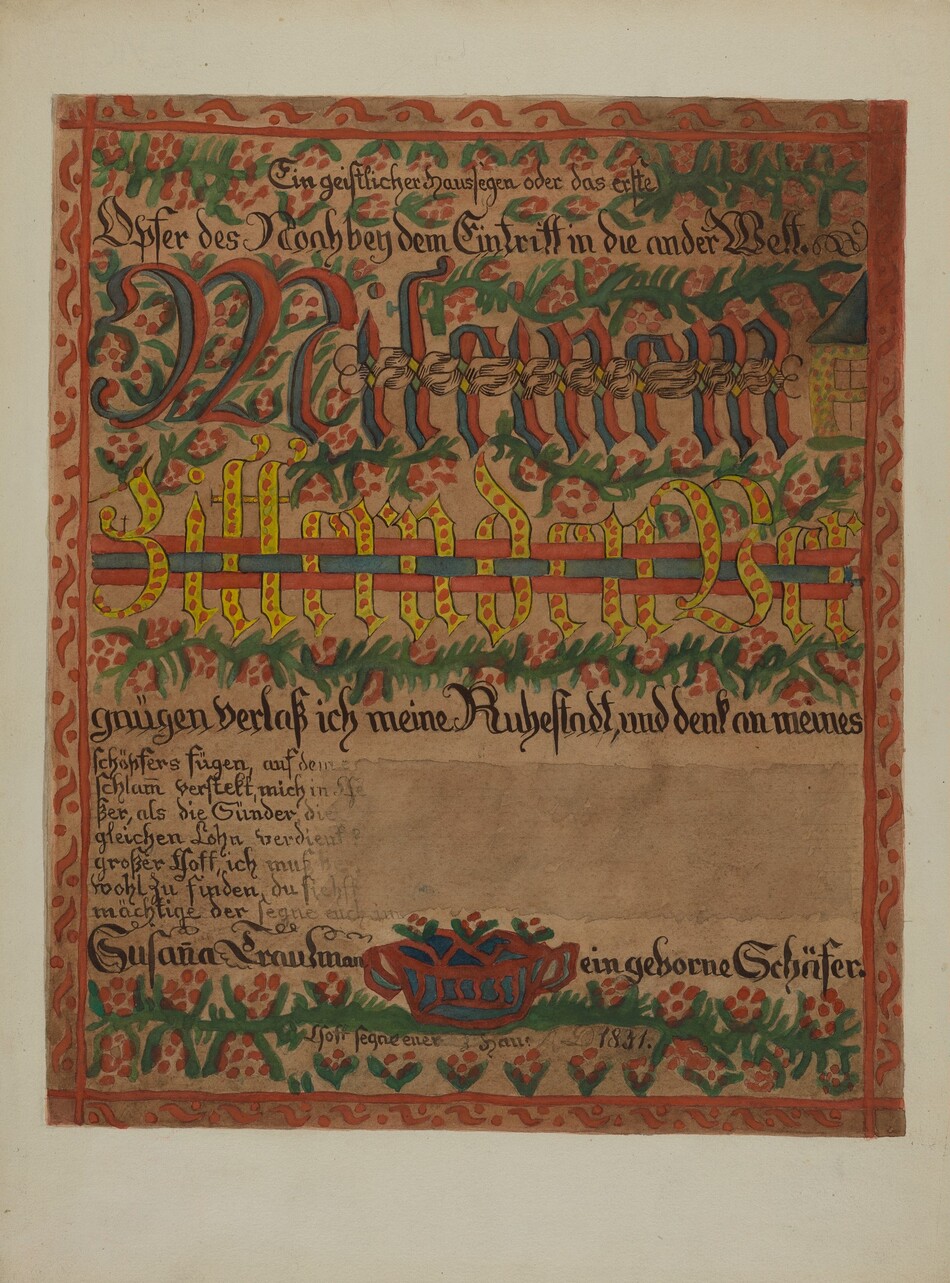 Ein geistlicher Haussegen oder das erste
Opfer des Noah bey dem Eintritt in die ander Welt.
Mit einem
Zitternden Ver
gnügen verlaß ich meine Ruhestadt, und denk an meines
schöpfers fügen, auf dem
schlam̄ verstekt, mich in
ßer, als die Sünder, die
gleichen Lohn verdient
großer Gott, ich muß
wohl zu finden, du
mächtige der segne euch
Susan̄a Trautman ein geborne Schäfer.
Gott segne euer Haus AD 1831.